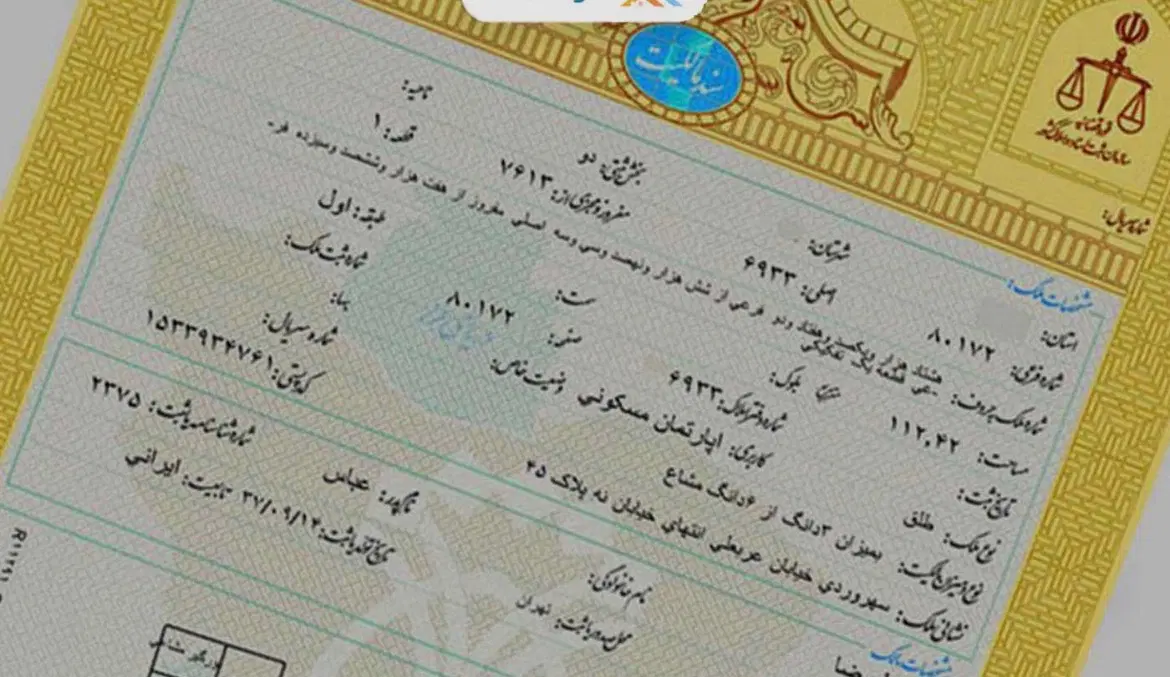 سند مالکیت
قوه قضائیه
سازمان ثبت اسناد و املاک کشور
شماره سریال:
مشخصات ملک:
استان: شهرستان: بخش ثبتی: دو ناحیه:
شماره فرعی: ۸۰۱۷۲ اصلی: ۶۹۳۳ مفروز و مجزی از: ۷۶۱۳ قطعه: ۱
شماره ملک بحروف: هشتاد هزار و یکصد و هفتاد و دو فرعی از شش هزار و نهصد و سی و سه اصلی مفروز از هفت هزار و ششصد و سیزده فر-
-عی قطعه یک تفکیکی
مساحت: ۱۱۲.۴۲ بلوک: سمت: طبقه: اول
تاریخ ثبت: شماره دفتر املاک: ۶۹۳۳ صفحه: ۸۰۱۷۲ شماره ثبت ملک:
نوع ملک: طلق کاربری: آپارتمان مسکونی وضعیت خاص: بهاء:
نوع و میزان مالکیت: بمیزان ۳دانگ از ۶دانگ مشاع شماره سریال:
نشانی ملک: سهروردی خیابان عربعلی انتهای خیابان نه پلاک ۴۵ کدپستی: ۱۵۳۳۹۳۴۷۶۱
مشخصات مالک
نام خانوادگی: نام پدر: عباس شماره شناسنامه یا ثبت: ۲۳۷۵
محل صدور یا ثبت: تهران تاریخ تولد یا ثبت: ۳۷/۰۹/۱۴ تابعیت: ایرانی